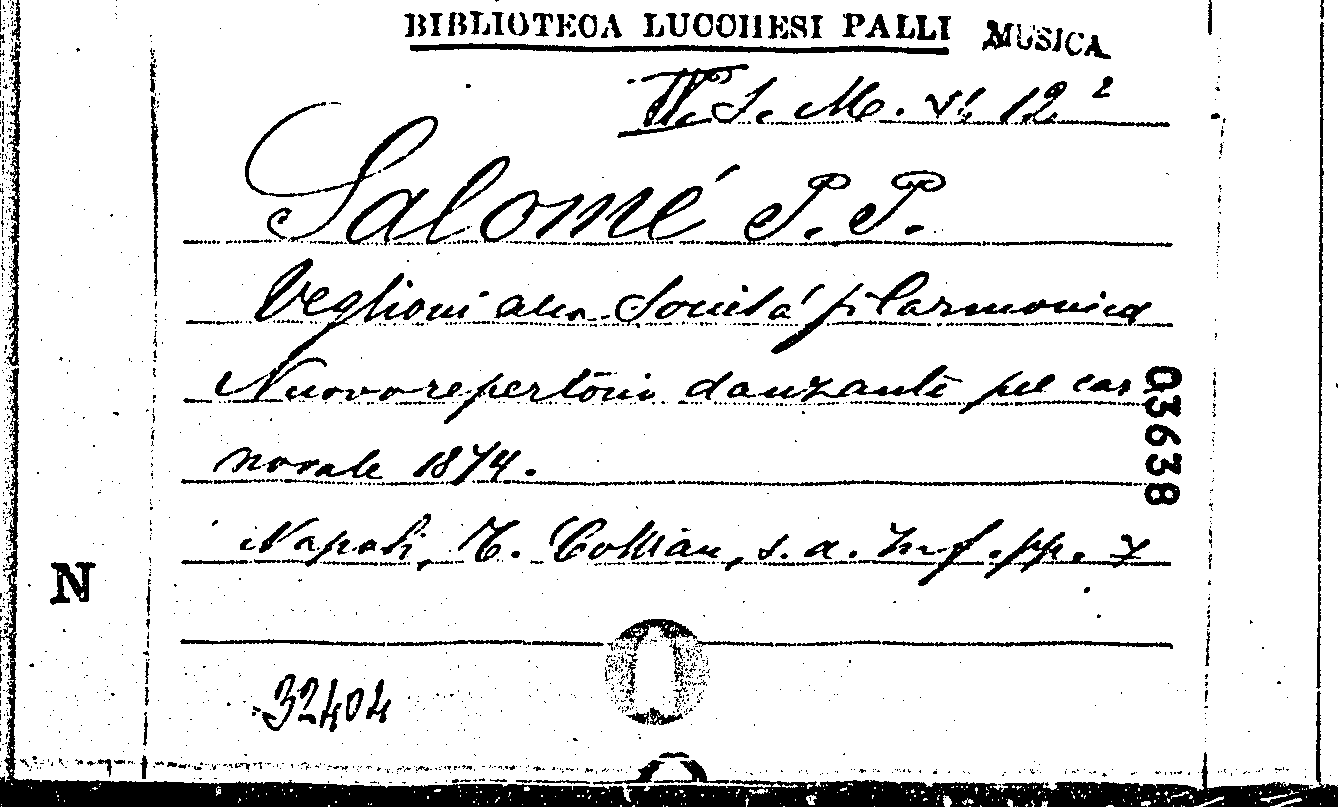 BIBLIOTECA LUCCHESI PALLI MUSICA
S. M. VI. 12²
Salomé P. P.
Veglioni alla Società filarmonica
Nuovo repertorio danzante pel car
novale 1874.
Napoli, T. Cottrau, s. a. in f. pp. 7
03638
N
32404